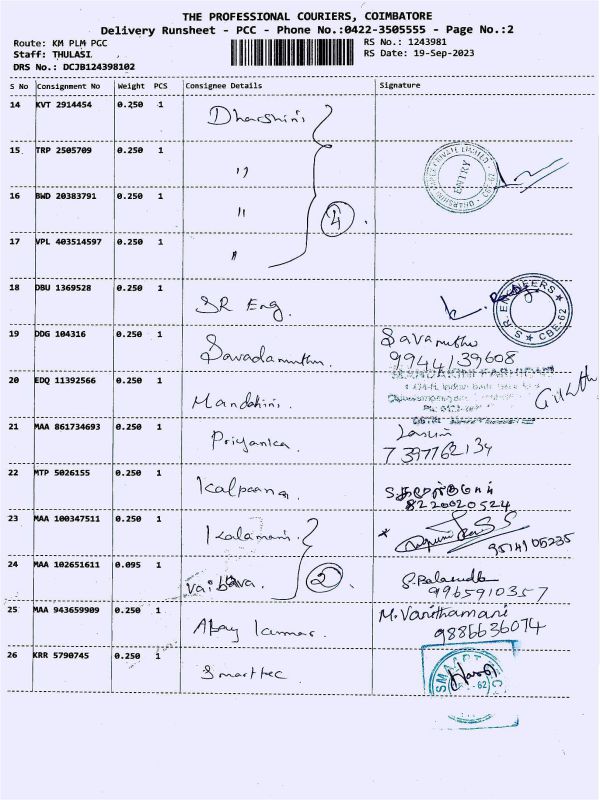 THE PROFESSIONAL COURIERS, COIMBATORE
Delivery Runsheet - PCC - Phone No.:0422-3505555 - Page No.:2
Route: KM PLM PGC RS No.: 1243981
Staff: THULASI RS Date: 19-Sep-2023
DRS No.: DCJB124398102
S No Consignment No Weight PCS Consignee Details Signature
14 KVT 2914454 0.250 1 Dharshini
15 TRP 2505709 0.250 1 " ENTRY
16 BWD 20383791 0.250 1 " 4
17 VPL 403514597 0.250 1 "
18 DBU 1369528 0.250 1 SR Eng. S.R. ENGINEERS CBE-62
19 DDG 104316 0.250 1 Savadamuthu. Savamuthu
9944139608
20 EDQ 11392566 0.250 1 Mandakini.
21 MAA 861734693 0.250 1 Priyanka
7397762134
22 MTP 5026155 0.250 1 Kalpana
8220020524
23 MAA 100347511 0.250 1 Kalamani
9514105235
24 MAA 102651611 0.095 1 Vaibava. 2
9965910357
25 MAA 943659909 0.250 1 Abay Kumar. M. Vanithamani
9886636074
26 KRR 5790745 0.250 1 Smarttec